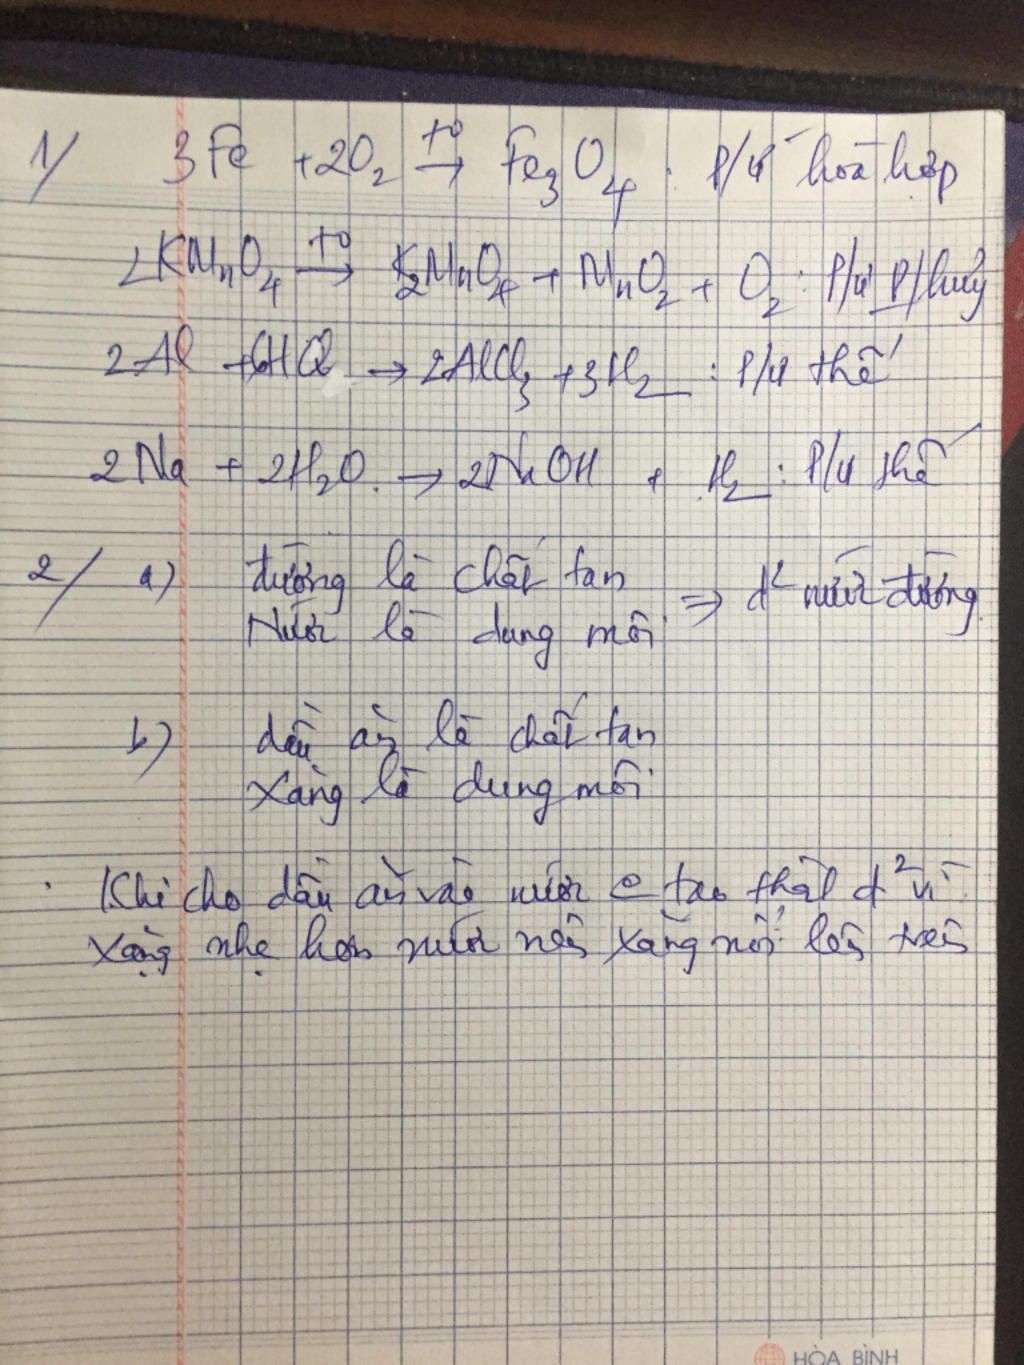 1/ 3Fe + 2O₂ →(t°) Fe₃O₄ : P/ứ hoá hợp
2KMnO₄ →(t°) K₂MnO₄ + MnO₂ + O₂ : P/ứ P/huỷ
2Al + 6HCl → 2AlCl₃ + 3H₂ : P/ứ thế
2Na + 2H₂O → 2NaOH + H₂ : P/ứ thế
2/ a) đường là chất tan
Nước là dung môi ⇒ d² nước đường
b) dầu ăn là chất tan
xăng là dung môi
Khi cho dầu ăn vào nước tạo d² vì
xăng nhẹ hơn nước nên xăng nổi lên trên
HÒA BÌNH